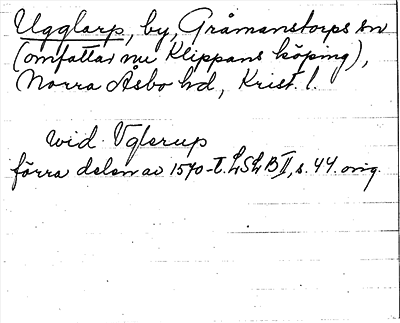 Ugglarp, by, Gråmanstorps sn
(omfattar nu Klippans köping),
Norra Åsbo hd, Krist. l.
wid Vglerup
förra delen av 1570-t. LSLB II, s. 44. orig.